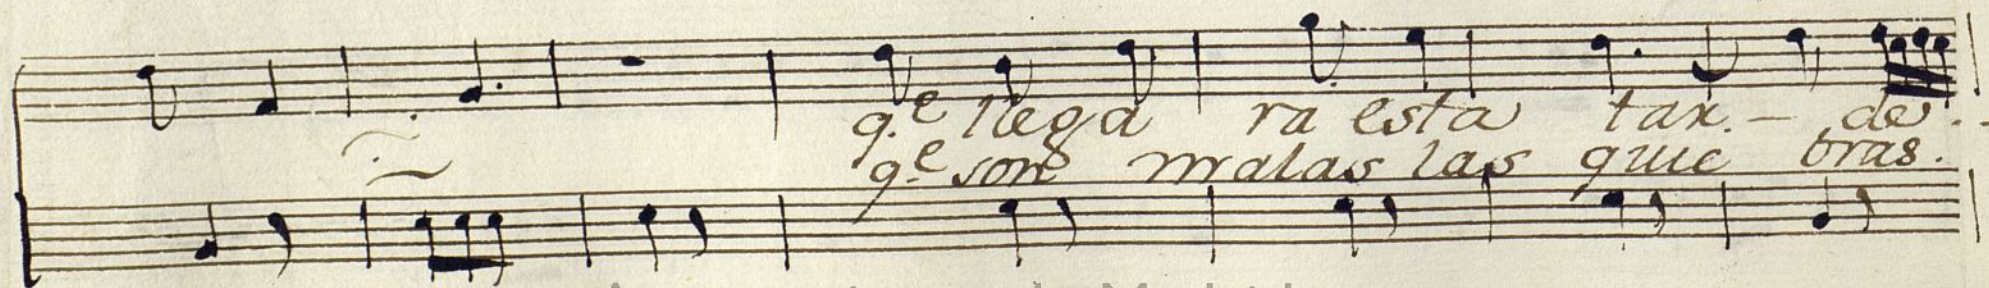 q.e llega ra esta tar. - de. -
q.e son malas las quie bras.